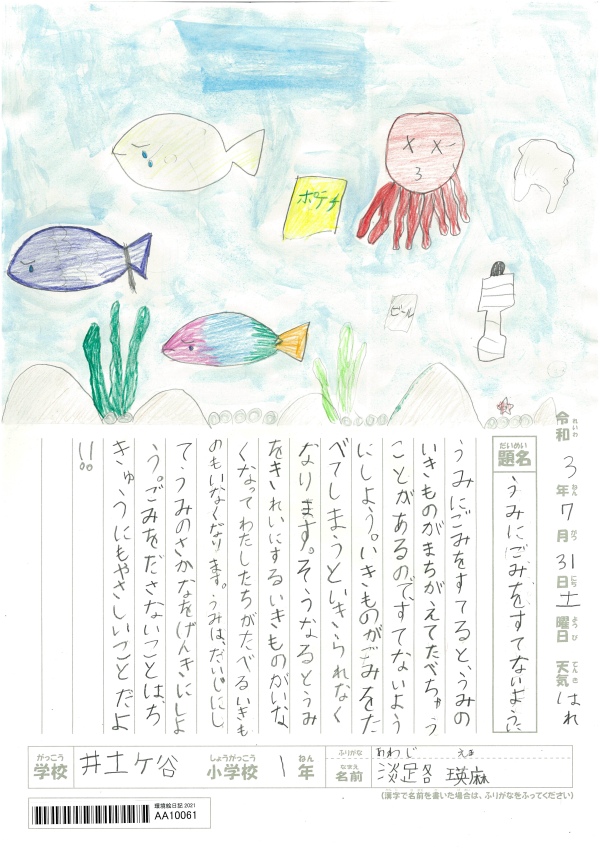 ポテチ
ビール
令和3年7月31日土曜日 天気はれ
れいわ ねん がつ にち ようび てんき
だいめい
題名
うみにごみをすてないように
うみにごみをすてると、うみの
いきものがまちがえてたべちゃう
ことがあるので、すてないよう
にしよう。いきものがごみをた
べてしまうといきられなく
なります。そうなるとうみ
をきれいにするいきものがいな
くなってわたしたちがたべるいきも
のもいなくなります。うみは、だいじにし
てうみのさかなをげんきにしよ
う。ごみをださないことは、ち
きゅうにもやさしいことだよ
!!。
がっこう しょうがっこう ねん
学校 井土ケ谷 小学校 1年
ふりがな あわじ えま
なまえ
名前 淡路 瑛麻
(漢字で名前を書いた場合は、ふりがなをふってください)
環境絵日記2021
AA10061